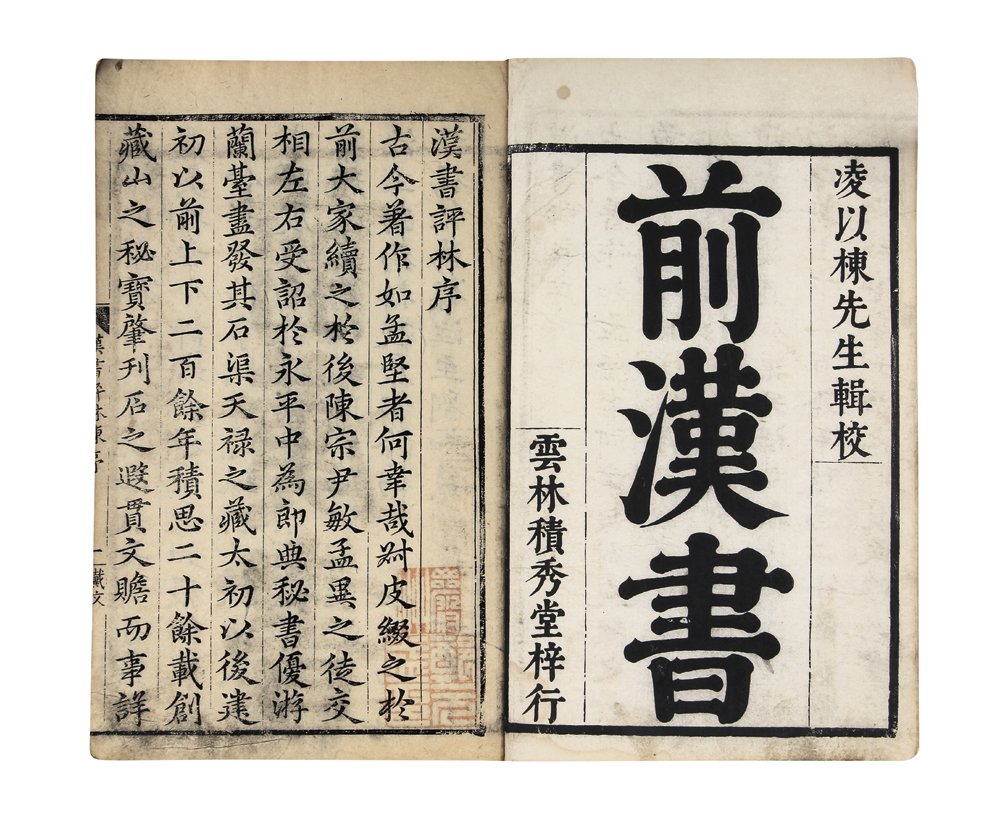 凌以棟先生輯校
前漢書
雲林積秀堂梓行
漢書評林序
古今著作如孟堅者何幸哉對皮綴之於
前大家續之於後陳宗尹敏孟異之徒交
相左右受詔於永平中為郎典秘書優游
蘭臺盡發其石渠天祿之藏太初以後建
初以前上下二百餘年積思二十餘載創
藏山之秘寶肇刊石之遐貫文贍而事詳
漢書評林陳序
一
戴文